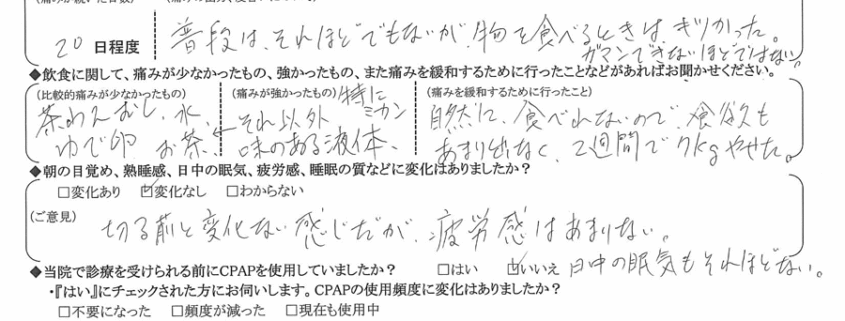 20 日程度
普段は、それほどでもないが、物を食べるときは、キツかった。
ガマンできないほどではない。
◆飲食に関して、痛みが少なかったもの、強かったもの、また痛みを緩和するために行ったことなどがあればお聞かせください。
(比較的痛みが少なかったもの) (痛みが強かったもの) 特に (痛みを緩和するために行ったこと)
茶わんむし、水、 それ以外 ミカン 自然に、食べれないので、食欲も
ゆで卵 お茶、← 味のある液体、 あまり出なく、2週間で7kgやせた。
◆朝の目覚め、熟睡感、日中の眠気、疲労感、睡眠の質などに変化はありましたか？
□変化あり ☑変化なし □わからない
(ご意見)
切る前と変化ない感じだが、疲労感はあまりない。
◆当院で診療を受けられる前にCPAPを使用していましたか？ □はい ☑いいえ 日中の眠気もそれほどない。
・『はい』にチェックされた方にお伺いします。CPAPの使用頻度に変化はありましたか？
□不要になった □頻度が減った □現在も使用中